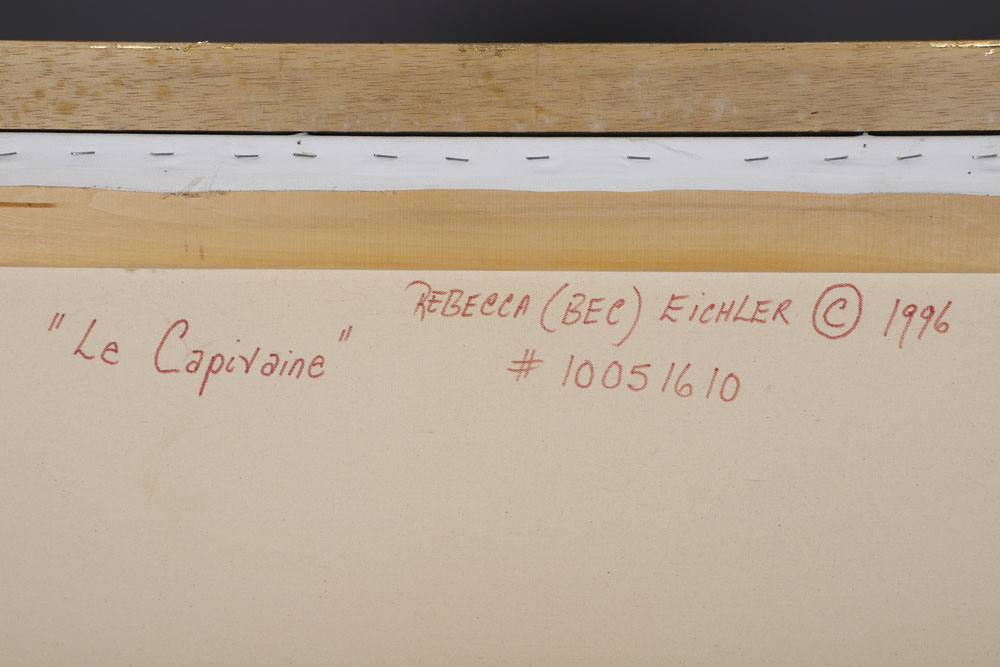 REBECCA (BEC) EICHLER © 1996
"Le Capivaine"
# 10051610